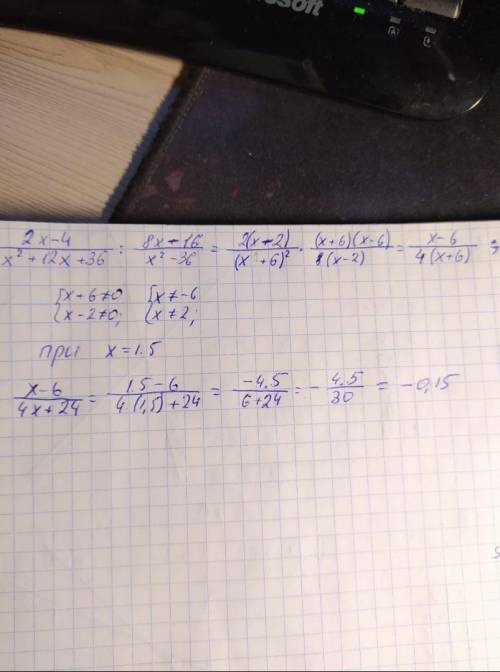 osoft
(2x-4)/(x²+12x+36) : (8x-16)/(x²-36) = 2(x-2)/(x+6)² · (x+6)(x-6)/8(x-2) = (x-6)/4(x+6) ;
{x+6≠0 {x≠-6
{x-2≠0; {x≠2;
при x=1.5
(x-6)/(4x+24) = (1.5-6)/(4·(1,5)+24) = (-4.5)/(6+24) = -4.5/30 = -0,15